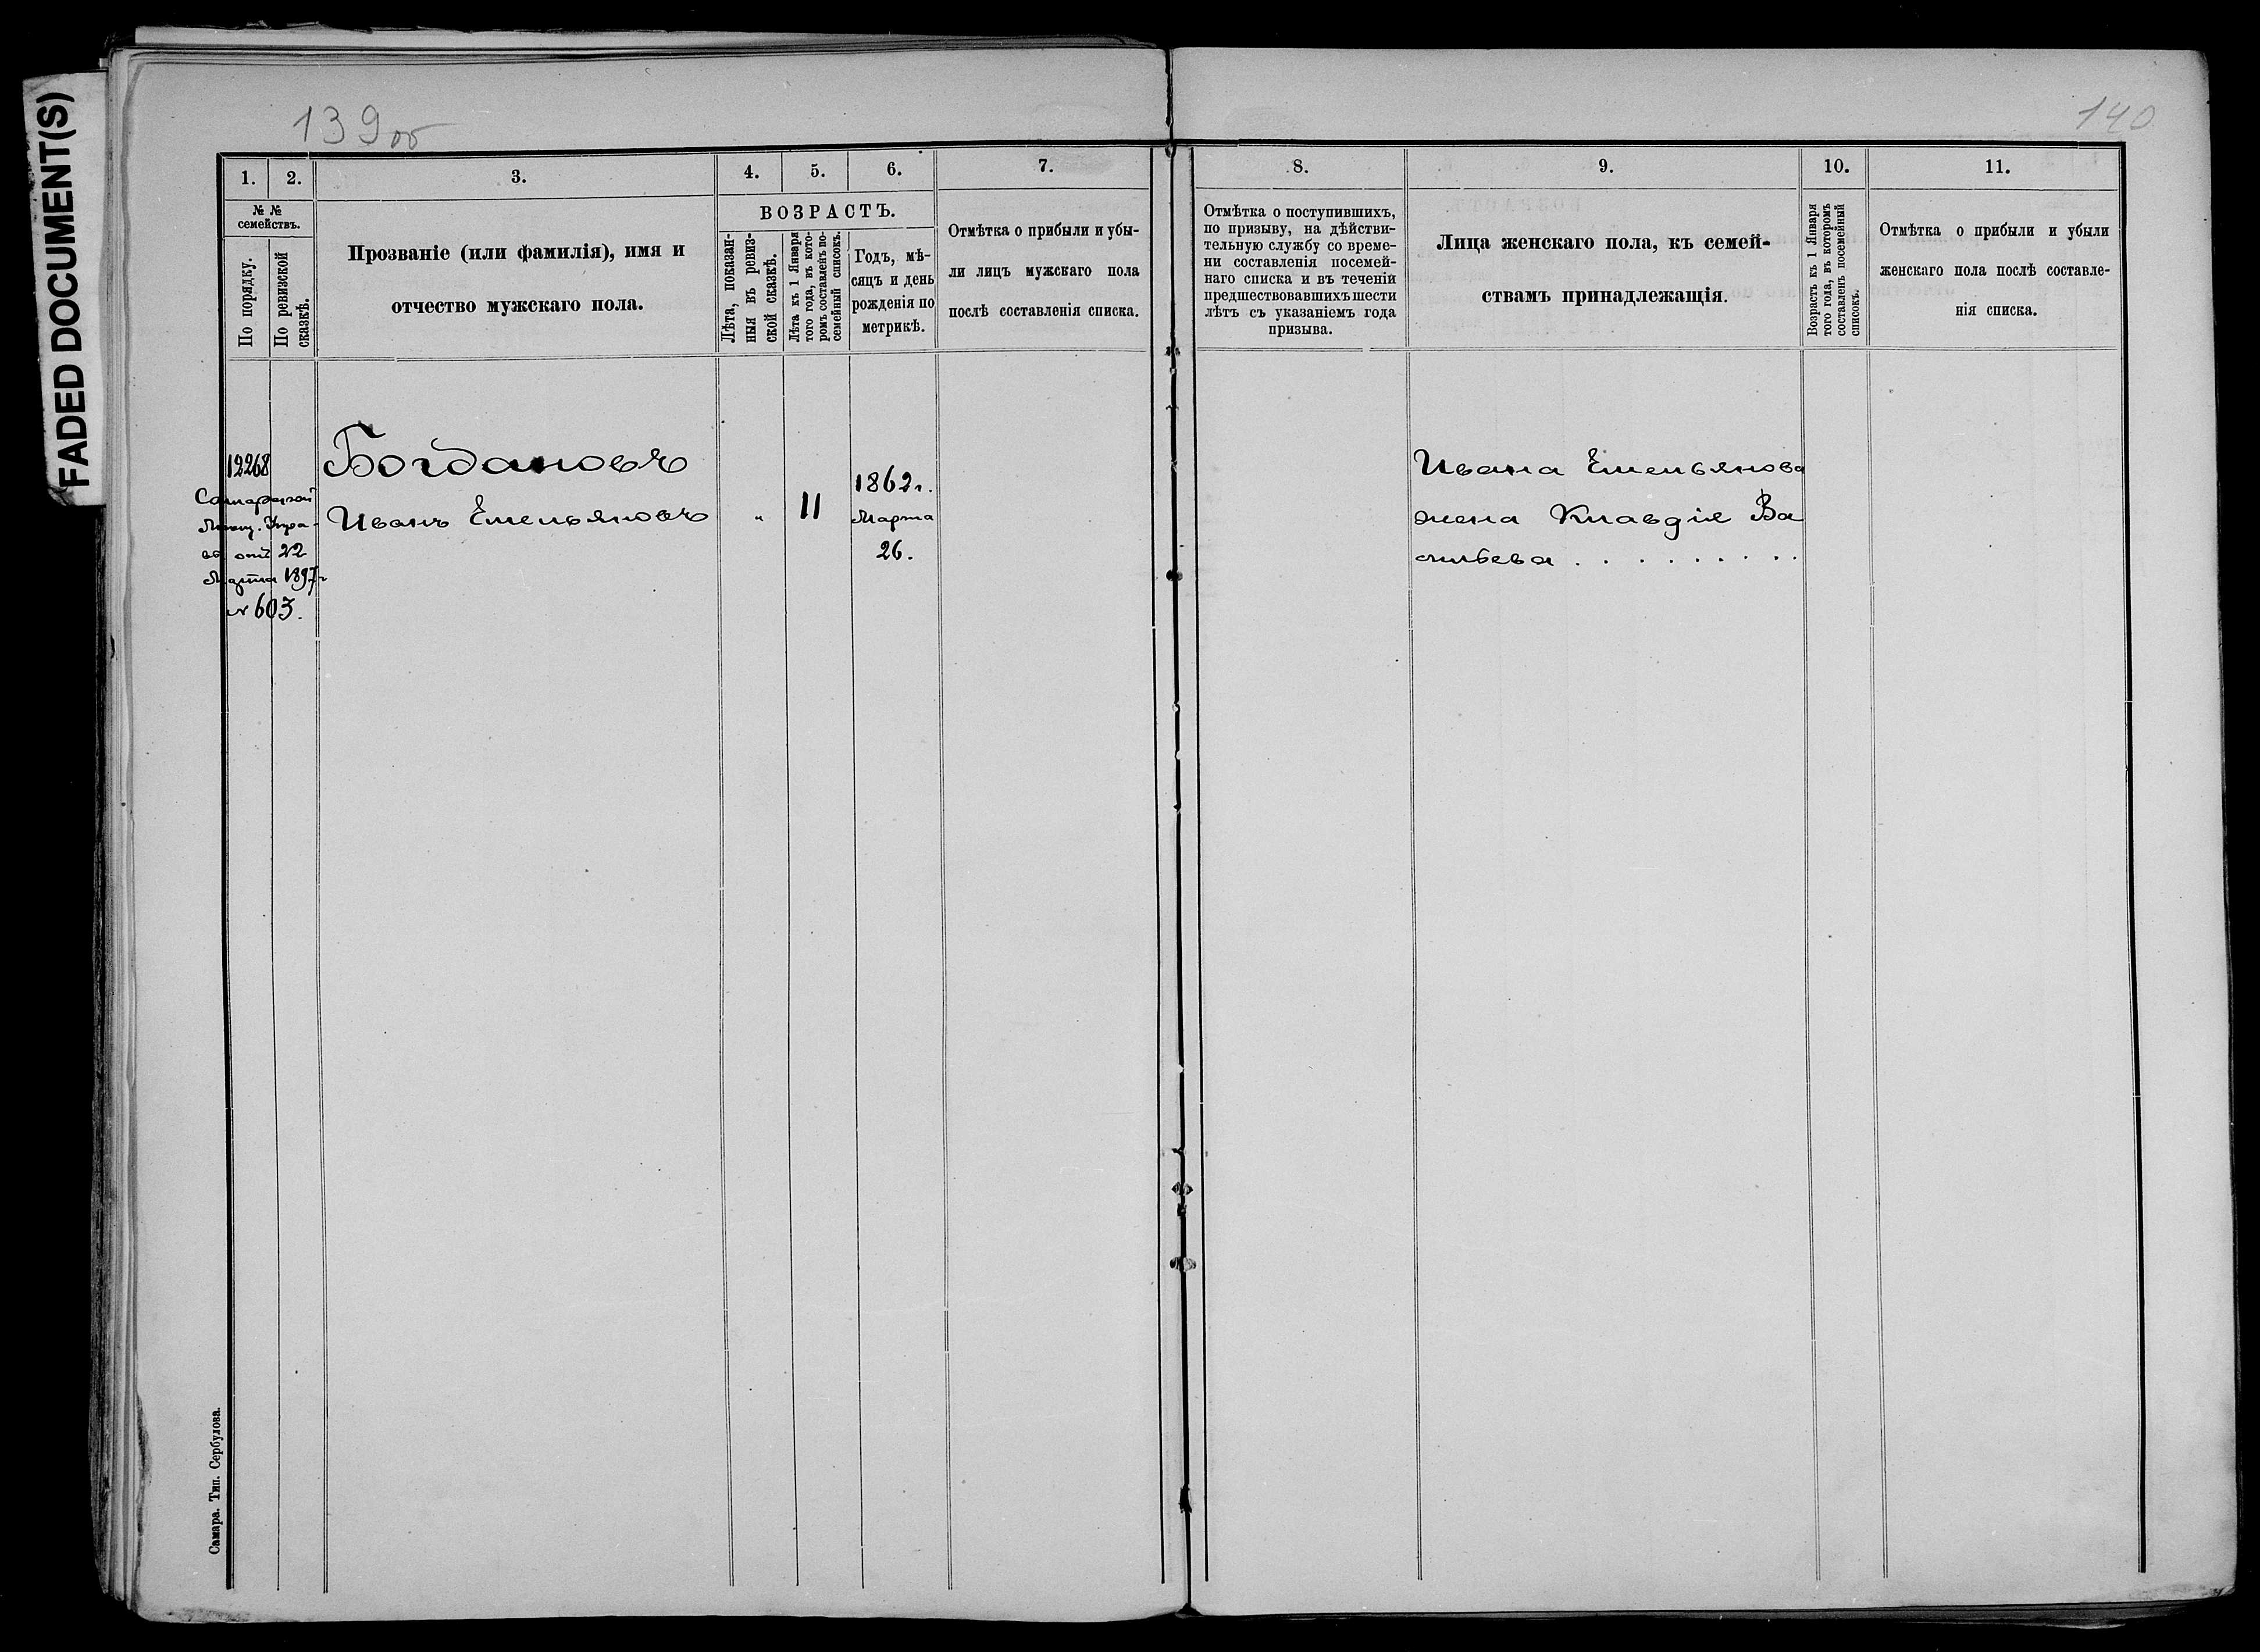 FADED DOCUMENT(S)
139об
140
1.
2.
3.
4.
5.
6.
7.
№ №
семействъ.
По порядку.
По ревизской
сказкѣ.
Прозваніе (или фамилія), имя и
отчество мужскаго пола.
ВОЗРАСТЪ.
Лѣта, показан-
ныя въ ревиз-
ской сказкѣ.
Лѣта къ 1 Января
того года, въ кото-
ромъ составленъ по-
семейный списокъ.
Годъ, мѣ-
сяцъ и день
рожденія по
метрикѣ.
Отмѣтка о прибыли и убы-
ли лицъ мужскаго пола
послѣ составленія списка.
12268
Самарской
Мѣщ. Упра-
въ отъ 22
Марта 1897г
№ 603.
Богдановъ
Иванъ Емельяновъ
"
11
1862г.
Марта
26.
Самара. Тип. Сербулова.
8.
9.
10.
11.
Отмѣтка о поступившихъ,
по призыву, на дѣйстви-
тельную службу со време-
ни составленія посемей-
наго списка и въ теченіи
предшествовавшихъ шести
лѣтъ съ указаніемъ года
призыва.
Лица женскаго пола, къ семей-
ствамъ принадлежащія.
Возрастъ къ 1 Января
того года, въ которомъ
составленъ посемейный
списокъ.
Отмѣтка о прибыли и убыли
женскаго пола послѣ составле-
нія списка.
Ивана Емельянова
жена Клавдія Ва
сильева . . . . . . . . .